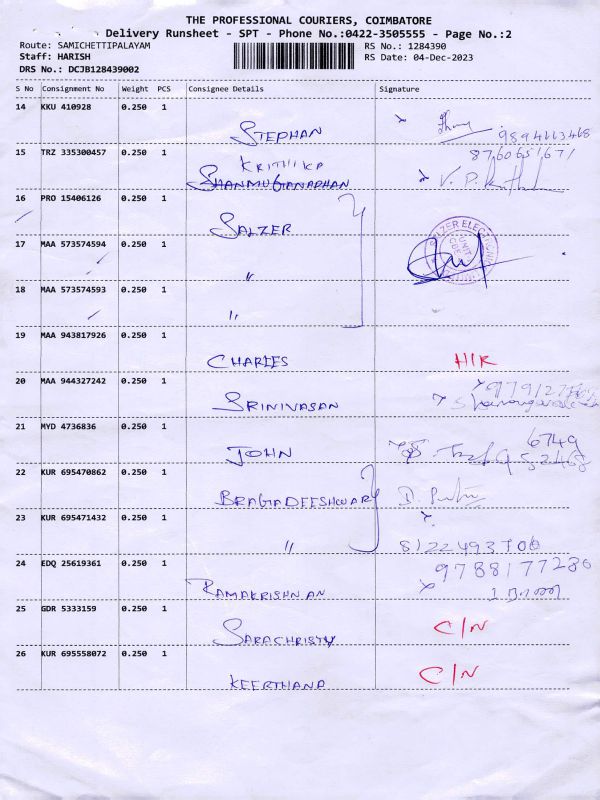 THE PROFESSIONAL COURIERS, COIMBATORE
Delivery Runsheet - SPT - Phone No.:0422-3505555 - Page No.:2
Route: SAMICHETTIPALAYAM RS No.: 1284390
Staff: HARISH RS Date: 04-Dec-2023
DRS No.: DCJB128439002
S No Consignment No Weight PCS Consignee Details Signature
14 KKU 410928 0.250 1
STEPHAN 9894113468
15 TRZ 335300457 0.250 1 KRITHIKA 8760651671
SHANMUGANADHAN
16 PRO 15406126 0.250 1
SALZER
17 MAA 573574594 0.250 1
"
18 MAA 573574593 0.250 1
"
19 MAA 943817926 0.250 1
CHARLES H/R
20 MAA 944327242 0.250 1
SRINIVASAN
21 MYD 4736836 0.250 1 6749
JOHN 952468
22 KUR 695470862 0.250 1
BRAGADEESHWARY
23 KUR 695471432 0.250 1
" 8122493706
24 EDQ 25619361 0.250 1 9788177230
RAMAKRISHNAN
25 GDR 5333159 0.250 1 C/N
SARACHRISTY
26 KUR 695558072 0.250 1 C/N
KEERTHANA